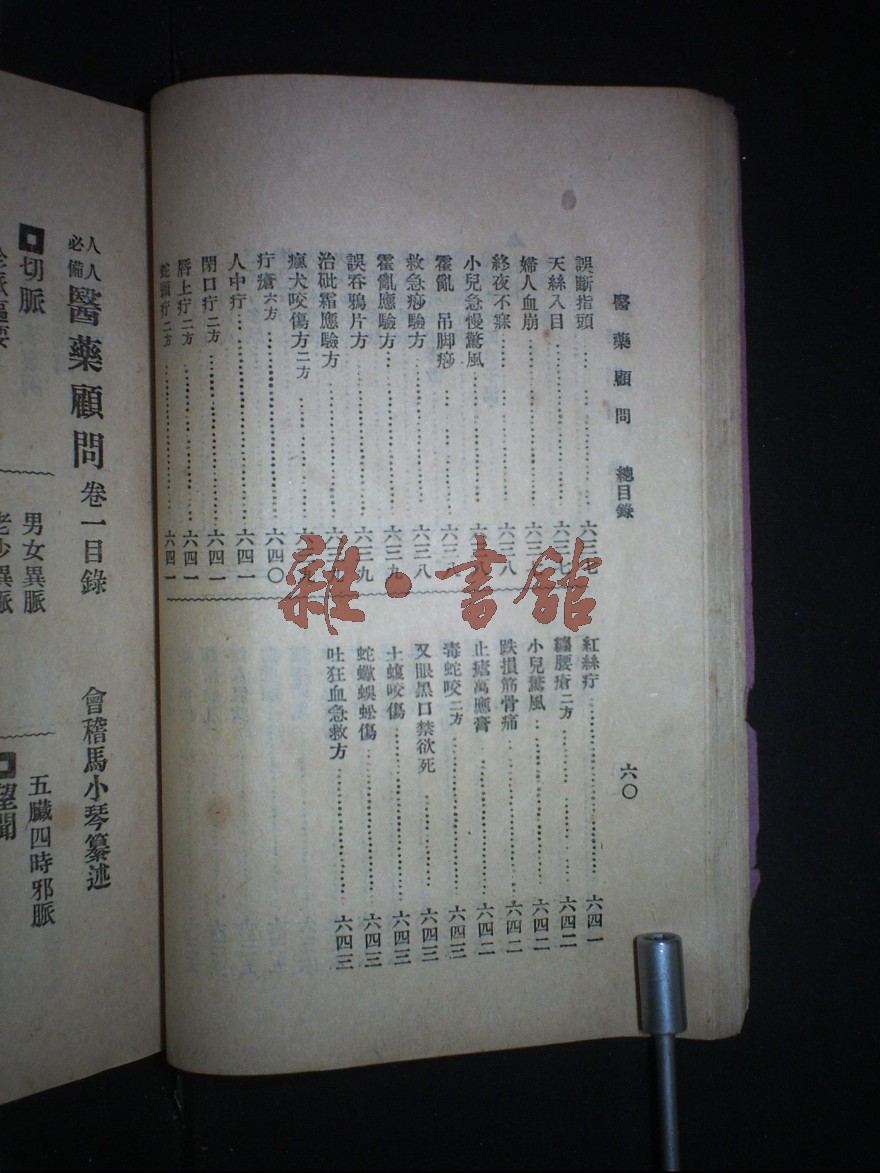 醫藥顧問 總目錄
六〇
誤斷指頭 六三七
天絲入目 六三七
婦人血崩 六三七
終夜不寐 六三八
小兒急慢驚風 六三八
霍亂 吊脚痧 六三八
救急痧驗方 六三八
霍亂應驗方 六三九
誤吞鴉片方 六三九
治砒霜應驗方 六三九
瘋犬咬傷方二方
疔瘡六方 六四〇
人中疔 六四一
閉口疔二方 六四一
唇上疔二方 六四一
蛇頭疔二方 六四一
紅絲疔 六四一
纏腰瘡二方 六四二
小兒驚風 六四二
跌損筋骨痛 六四二
止瘡萬應膏 六四二
毒蛇咬二方 六四三
又眼黑口禁欲死 六四三
土蝮咬傷 六四三
蛇蠍蜈蚣傷 六四三
吐狂血急救方 六四三
人人必備醫藥顧問卷一目錄 會稽馬小琴纂述
切脈
男女異脈
五臟四時邪脈
望聞
老少異脈
雜·書館